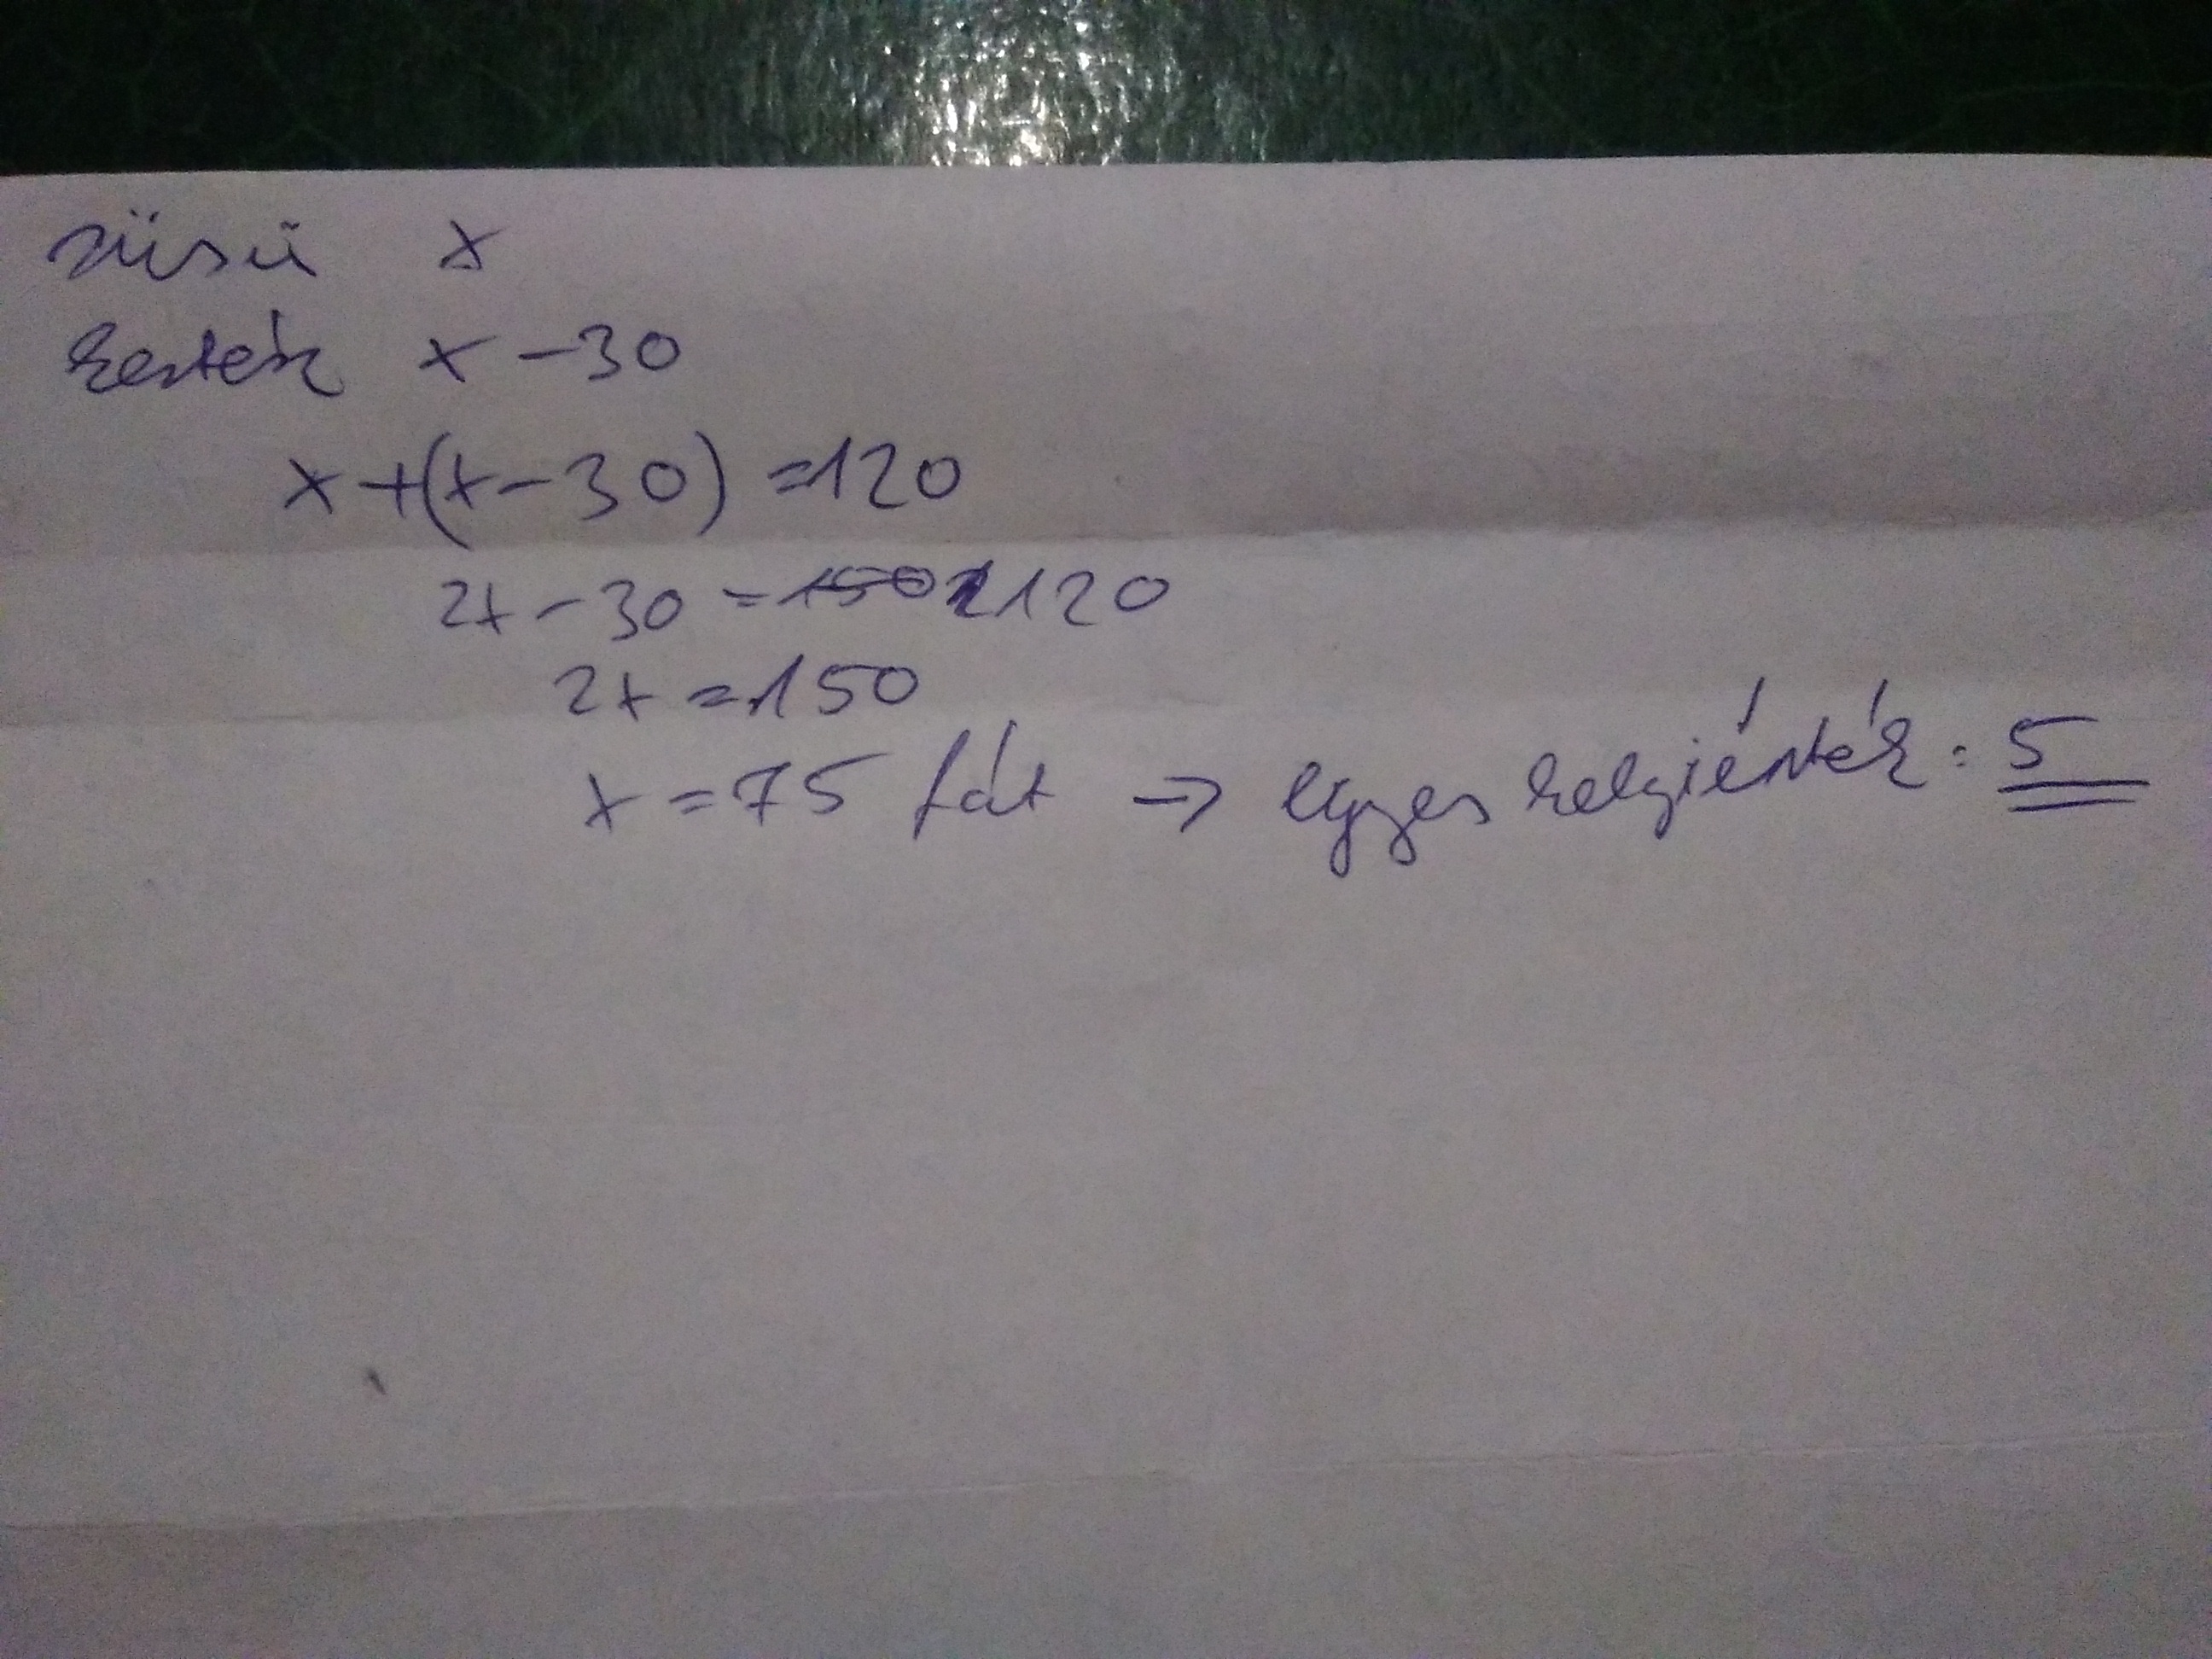 süsü x
testék x - 30
x + (x - 30) = 120
2x - 30 = 150 120
2x = 150
x = 75 fát → egyes helyiérték: 5